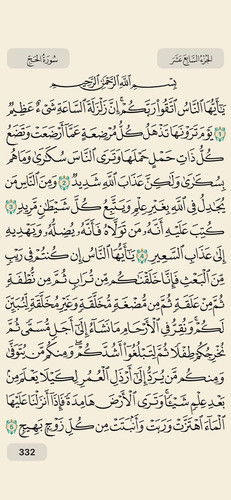 سُورَةُ الحَجِّ
الجُزْءُ السَّابِعَ عَشَرَ
بِسْمِ اللَّهِ الرَّحْمَٰنِ الرَّحِيمِ
يَٰٓأَيُّهَا ٱلنَّاسُ ٱتَّقُوا۟ رَبَّكُمْ ۚ إِنَّ زَلْزَلَةَ ٱلسَّاعَةِ شَىْءٌ عَظِيمٌ
1 يَوْمَ تَرَوْنَهَا تَذْهَلُ كُلُّ مُرْضِعَةٍ عَمَّآ أَرْضَعَتْ وَتَضَعُ
كُلُّ ذَاتِ حَمْلٍ حَمْلَهَا وَتَرَى ٱلنَّاسَ سُكَٰرَىٰ وَمَا هُم
بِسُكَٰرَىٰ وَلَٰكِنَّ عَذَابَ ٱللَّهِ شَدِيدٌ 2 وَمِنَ ٱلنَّاسِ مَن
يُجَٰدِلُ فِى ٱللَّهِ بِغَيْرِ عِلْمٍ وَيَتَّبِعُ كُلَّ شَيْطَٰنٍ مَّرِيدٍ 3
كُتِبَ عَلَيْهِ أَنَّهُۥ مَن تَوَلَّاهُ فَأَنَّهُۥ يُضِلُّهُۥ وَيَهْدِيهِ
إِلَىٰ عَذَابِ ٱلسَّعِيرِ 4 يَٰٓأَيُّهَا ٱلنَّاسُ إِن كُنتُمْ فِى رَيْبٍ
مِّنَ ٱلْبَعْثِ فَإِنَّا خَلَقْنَٰكُم مِّن تُرَابٍ ثُمَّ مِن نُّطْفَةٍ
ثُمَّ مِنْ عَلَقَةٍ ثُمَّ مِن مُّضْغَةٍ مُّخَلَّقَةٍ وَغَيْرِ مُخَلَّقَةٍ لِّنُبَيِّنَ
لَكُمْ ۚ وَنُقِرُّ فِى ٱلْأَرْحَامِ مَا نَشَآءُ إِلَىٰٓ أَجَلٍ مُّسَمًّى ثُمَّ
نُخْرِجُكُمْ طِفْلًا ثُمَّ لِتَبْلُغُوٓا۟ أَشُدَّكُمْ ۖ وَمِنكُم مَّن يُتَوَفَّىٰ
وَمِنكُم مَّن يُرَدُّ إِلَىٰٓ أَرْذَلِ ٱلْعُمُرِ لِكَيْلَا يَعْلَمَ مِنۢ
بَعْدِ عِلْمٍ شَيْـًٔا ۚ وَتَرَى ٱلْأَرْضَ هَامِدَةً فَإِذَآ أَنزَلْنَا عَلَيْهَا
ٱلْمَآءَ ٱهْتَزَّتْ وَرَبَتْ وَأَنۢبَتَتْ مِن كُلِّ زَوْجٍۭ بَهِيجٍ 5
332